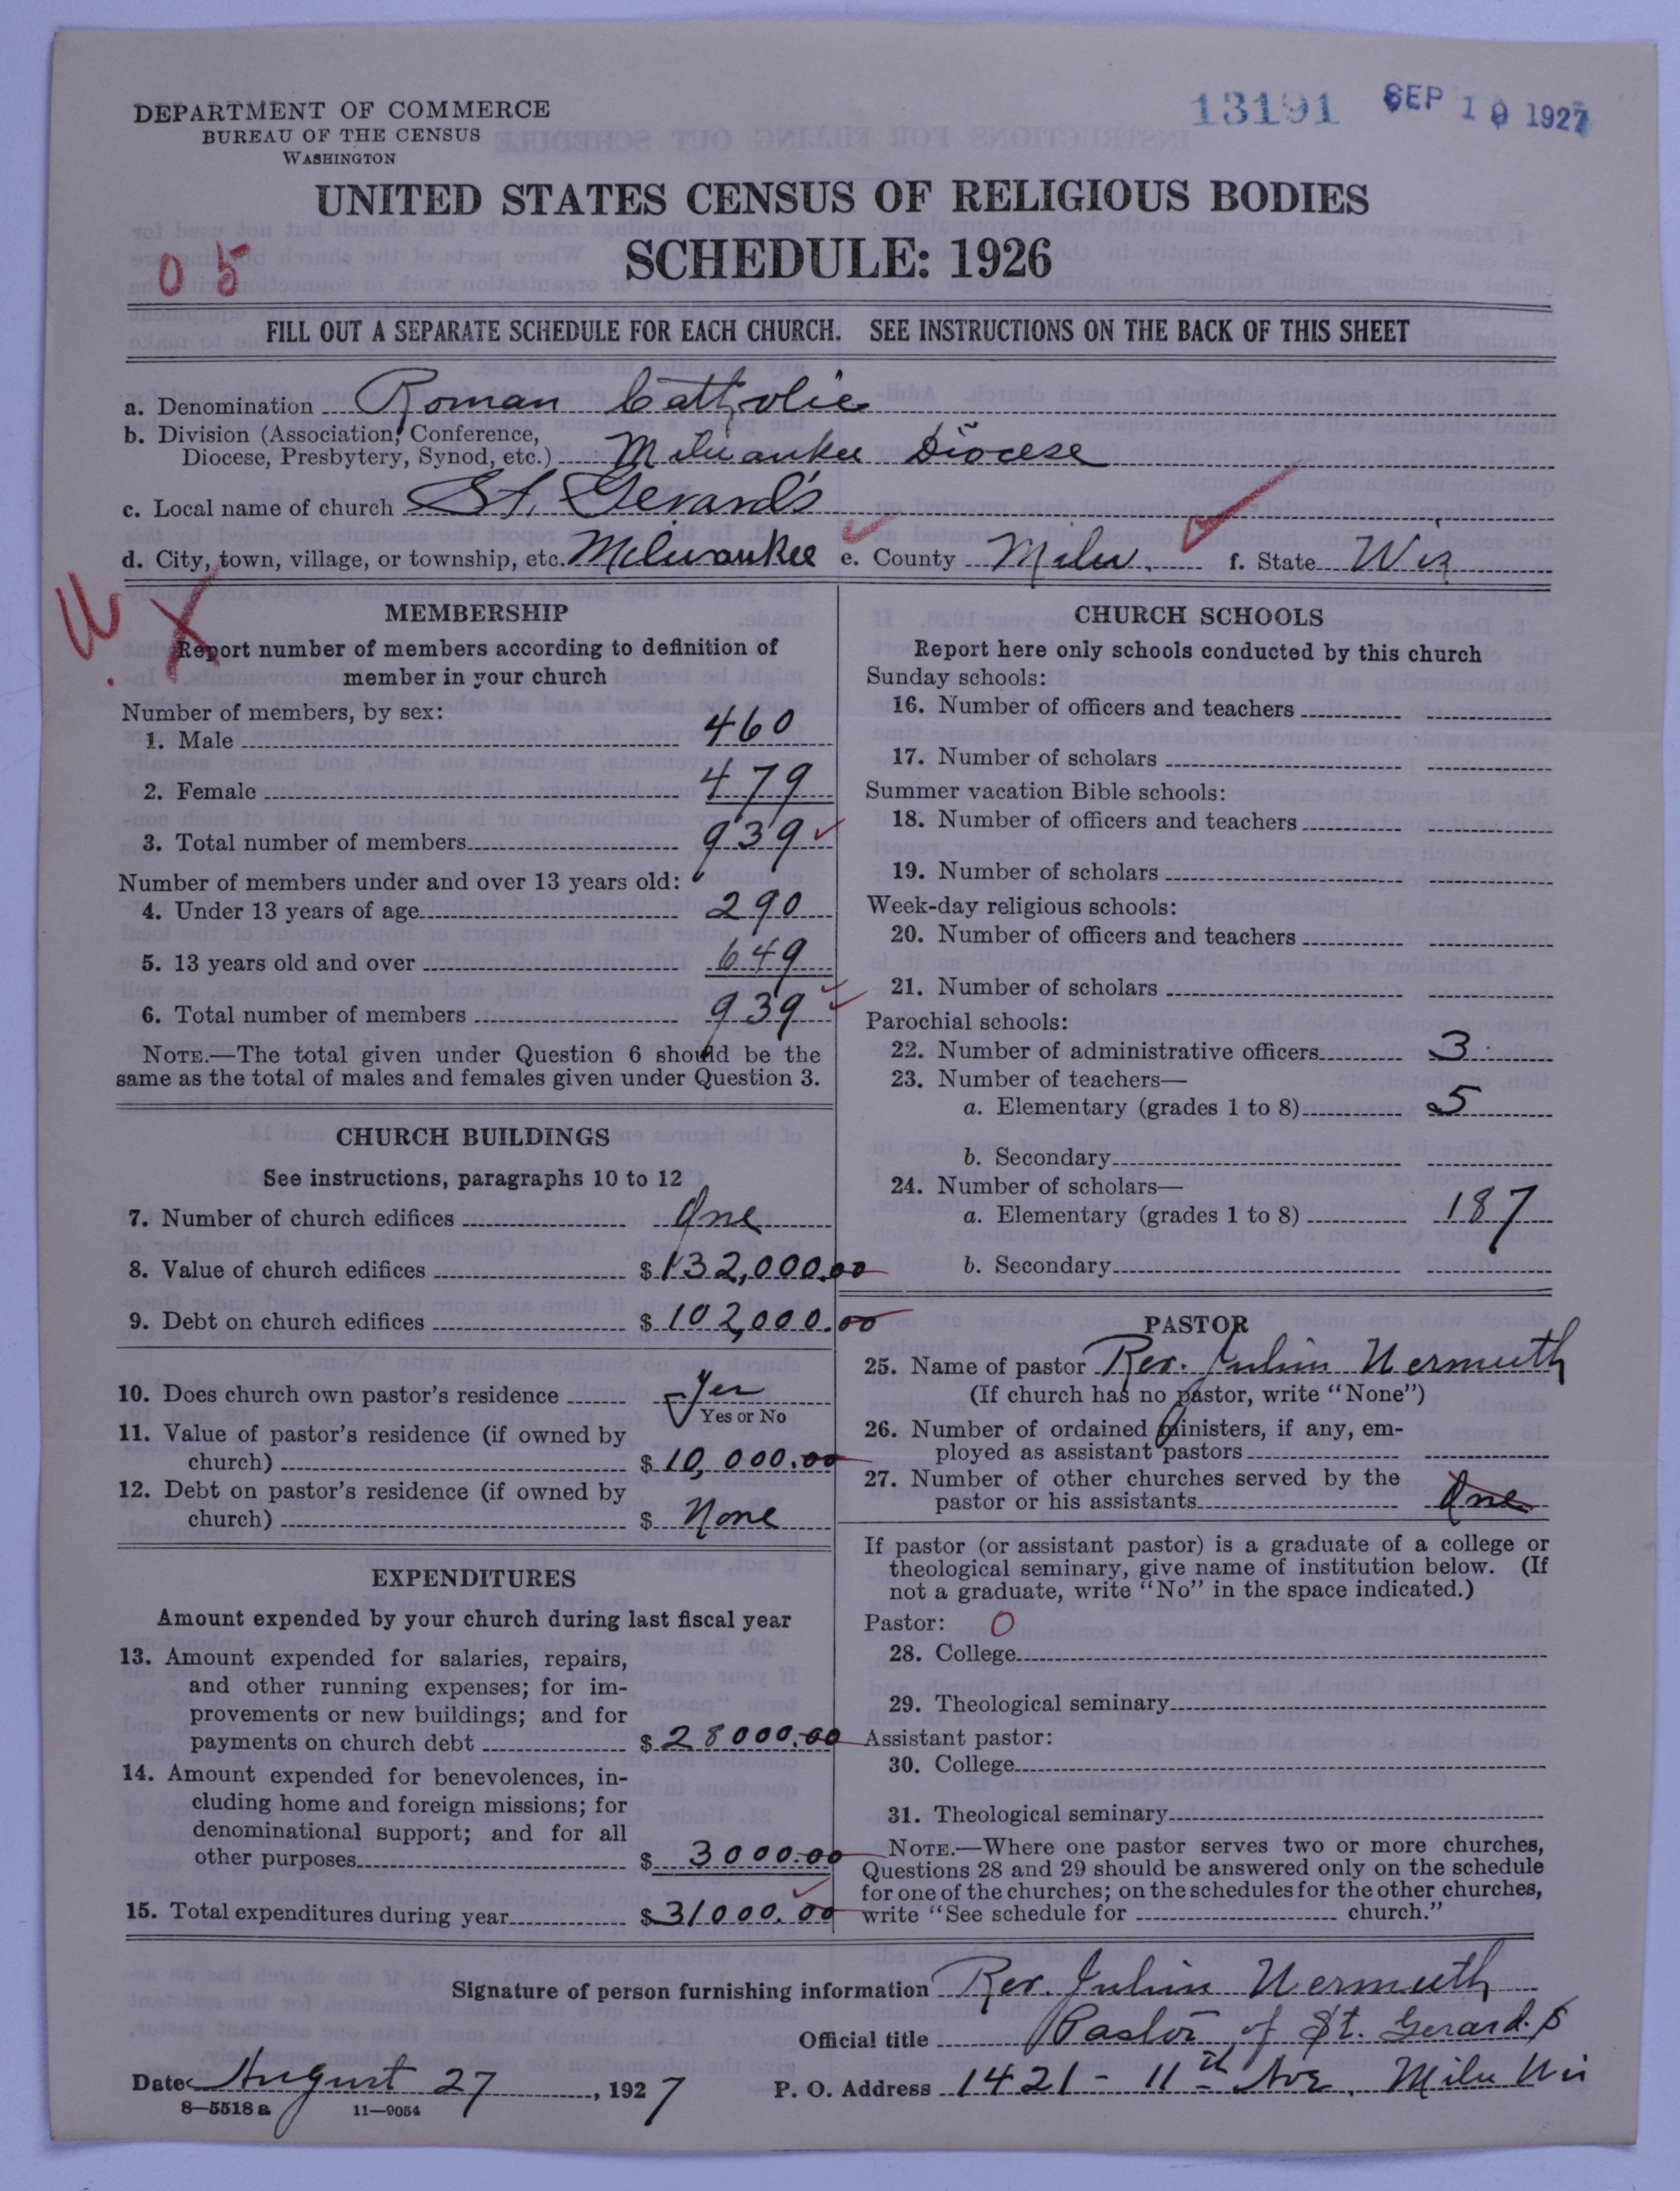 DEPARTMENT OF COMMERCE
BUREAU OF THE CENSUS
WASHINGTON
13191 SEP 19 1927
UNITED STATES CENSUS OF RELIGIOUS BODIES
SCHEDULE: 1926
05
FILL OUT A SEPARATE SCHEDULE FOR EACH CHURCH. SEE INSTRUCTIONS ON THE BACK OF THIS SHEET
a. Denomination Roman Catholic
b. Division (Association, Conference,
Diocese, Presbytery, Synod, etc.) Milwaukee Diocese
c. Local name of church St. Gerard's
d. City, town, village, or township, etc. Milwaukee e. County Milw. f. State Wis
MEMBERSHIP
Report number of members according to definition of
member in your church
Number of members, by sex:
1. Male 460
2. Female 479
3. Total number of members 939
Number of members under and over 13 years old:
4. Under 13 years of age 290
5. 13 years old and over 649
6. Total number of members 939
NOTE.—The total given under Question 6 should be the
same as the total of males and females given under Question 3.
CHURCH BUILDINGS
See instructions, paragraphs 10 to 12
7. Number of church edifices One
8. Value of church edifices $ 132,000.00
9. Debt on church edifices $ 102,000.00
10. Does church own pastor's residence Yes
Yes or No
11. Value of pastor's residence (if owned by
church) $ 10,000.00
12. Debt on pastor's residence (if owned by
church) $ None
EXPENDITURES
Amount expended by your church during last fiscal year
13. Amount expended for salaries, repairs,
and other running expenses; for im-
provements or new buildings; and for
payments on church debt $ 28000.00
14. Amount expended for benevolences, in-
cluding home and foreign missions; for
denominational support; and for all
other purposes $ 3000.00
15. Total expenditures during year $ 31000.00
CHURCH SCHOOLS
Report here only schools conducted by this church
Sunday schools:
16. Number of officers and teachers
17. Number of scholars
Summer vacation Bible schools:
18. Number of officers and teachers
19. Number of scholars
Week-day religious schools:
20. Number of officers and teachers
21. Number of scholars
Parochial schools:
22. Number of administrative officers 3
23. Number of teachers—
a. Elementary (grades 1 to 8) 5
b. Secondary
24. Number of scholars—
a. Elementary (grades 1 to 8) 187
b. Secondary
PASTOR
25. Name of pastor Rev. Julius Uermuth
(If church has no pastor, write "None")
26. Number of ordained ministers, if any, em-
ployed as assistant pastors
27. Number of other churches served by the
pastor or his assistants One
If pastor (or assistant pastor) is a graduate of a college or
theological seminary, give name of institution below. (If
not a graduate, write "No" in the space indicated.)
Pastor: 0
28. College
29. Theological seminary
Assistant pastor:
30. College
31. Theological seminary
NOTE.—Where one pastor serves two or more churches,
Questions 28 and 29 should be answered only on the schedule
for one of the churches; on the schedules for the other churches,
write "See schedule for church."
Signature of person furnishing information Rev. Julius Uermuth
Official title Pastor of St. Gerard's
Date August 27, 1927 P. O. Address 1421-11th Ave. Milw Wis
8—5518a 11—9054